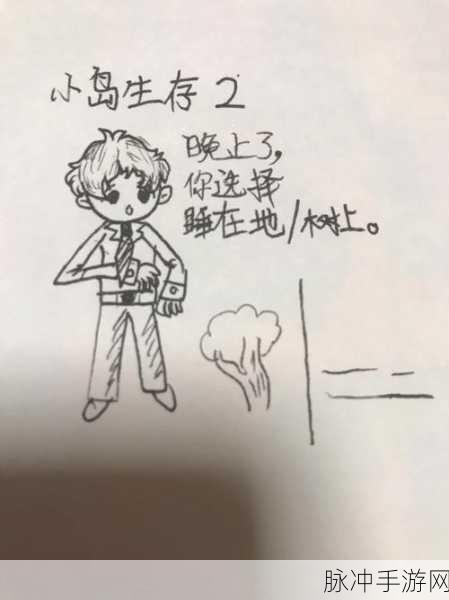 小岛生存 2
晚上了,
你选择
睡在地/树上。
脉冲手游网